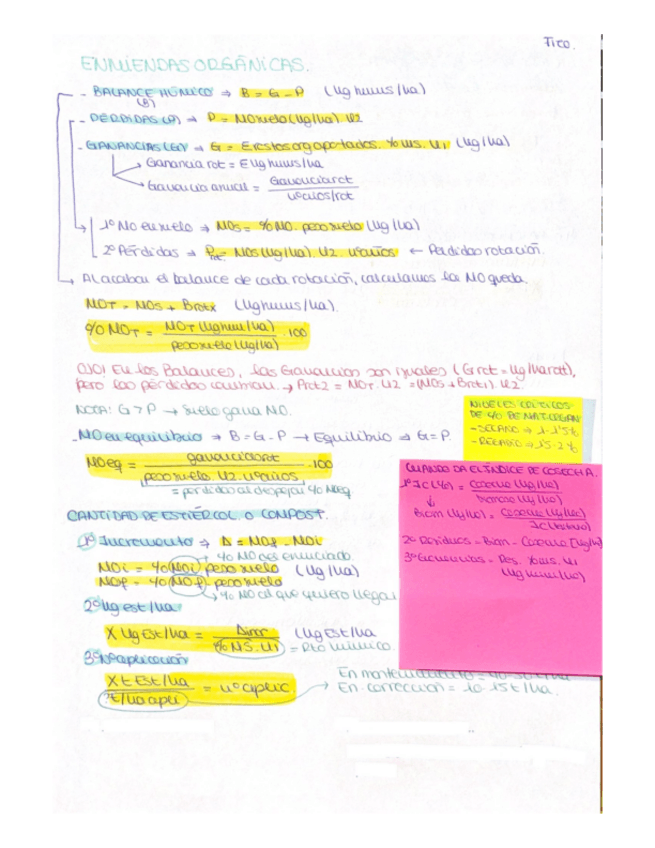 Fito.
ENMIENDAS ORGÁNICAS.
- BALANCE HÚMICO ⇒ B = G - P (Kg humus/ha)
(B)
- PÉRDIDAS (P) ⇒ P = MO suelo (Kg/ha). K2
- GANANCIAS (G) ⇒ G = Σ restos org aportados. % MS. K1 (Kg/ha)
Ganancia rot = Σ Kg humus/ha
Ganancia anual = Ganancia rot / nº años/rot
1º MO en suelo ⇒ MOs = % MO. peso suelo (Kg/ha)
2º Pérdidas ⇒ P rot = MOs (Kg/ha). K2. nº años ← Perdidas rotación
Al acabar el balance de cada rotación, calculamos la MO queda.
MOT = MOs + Brotx (Kg humus/ha).
% MOT = MOT (Kg hum/ha) / peso suelo (Kg/ha) . 100
OJO! En los Balances, las Ganancias son iguales (G rot = Kg/ha rot),
pero las pérdidas cambian. → Prot2 = MOT. K2 = (MOs + Brot1). K2.
NOTA: G > P → Suelo gana MO.
- MO en equilibrio ⇒ B = G - P → Equilibrio ⇒ G = P.
MOeq = ganancia rot / peso suelo. K2. nº años . 100
= perdidas al despejar % MOeq
NIVELES CRÍTICOS
DE % DE MAT. ORGAN
- SECANO → 1-1'5%
- REGADÍO → 1'5-2%
CUANDO DA EL ÍNDICE DE COSECHA.
1º IC (%) = Cosecha (Kg/ha) / Biomasa (Kg/ha)
Biom (Kg/ha) = Cosecha (Kg/ha) / IC (tanto 1)
2º Residuos = Biom - Cosecha (Kg/ha)
3º Ganancias = Res. % MS. K1
(Kg hum/ha)
CANTIDAD DE ESTIÉRCOL O COMPOST
1º Incremento ⇒ Δ = MOf - MOi
% MO del enunciado.
MOi = % (MOi) peso suelo (Kg/ha)
MOf = % (MOf) peso suelo
% MO al que quiero llegar
2º Kg est/ha
X Kg Est/ha = Δ incr / % MS. K1 (Kg Est/ha
= Rto húmico.
3º Nº aplicación
X t Est/ha / t/ha apli = nº aplic
En mantenimiento = 40-50 t/ha
En corrección = 10-15 t/ha.